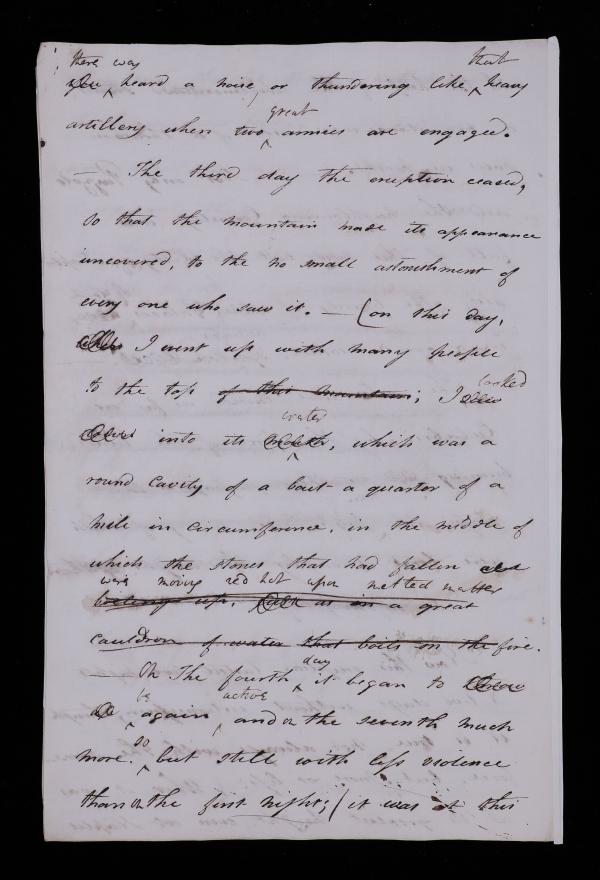 there was that
heard a noise, or thundering like heavy
great
artillery when two armies are engaged.
— The third day the eruption ceased,
so that the mountain made its appearance
uncovered, to the no small astonishment of
every one who saw it. — (on this day,
I went up with many people
looked
to the top of this mountain; I
crater
into its mouth, which was a
round cavity of a bout a quarter of a
mile in circumference, in the middle of
which the stones that had fallen
were moving red hot upon melted matter
boiling up, as in a great
cauldron of water that boils on the fire.
day
— On The fourth it began to
be active
again, and on the seventh much
so
more. but still with less violence
than on the first night; (it was at this